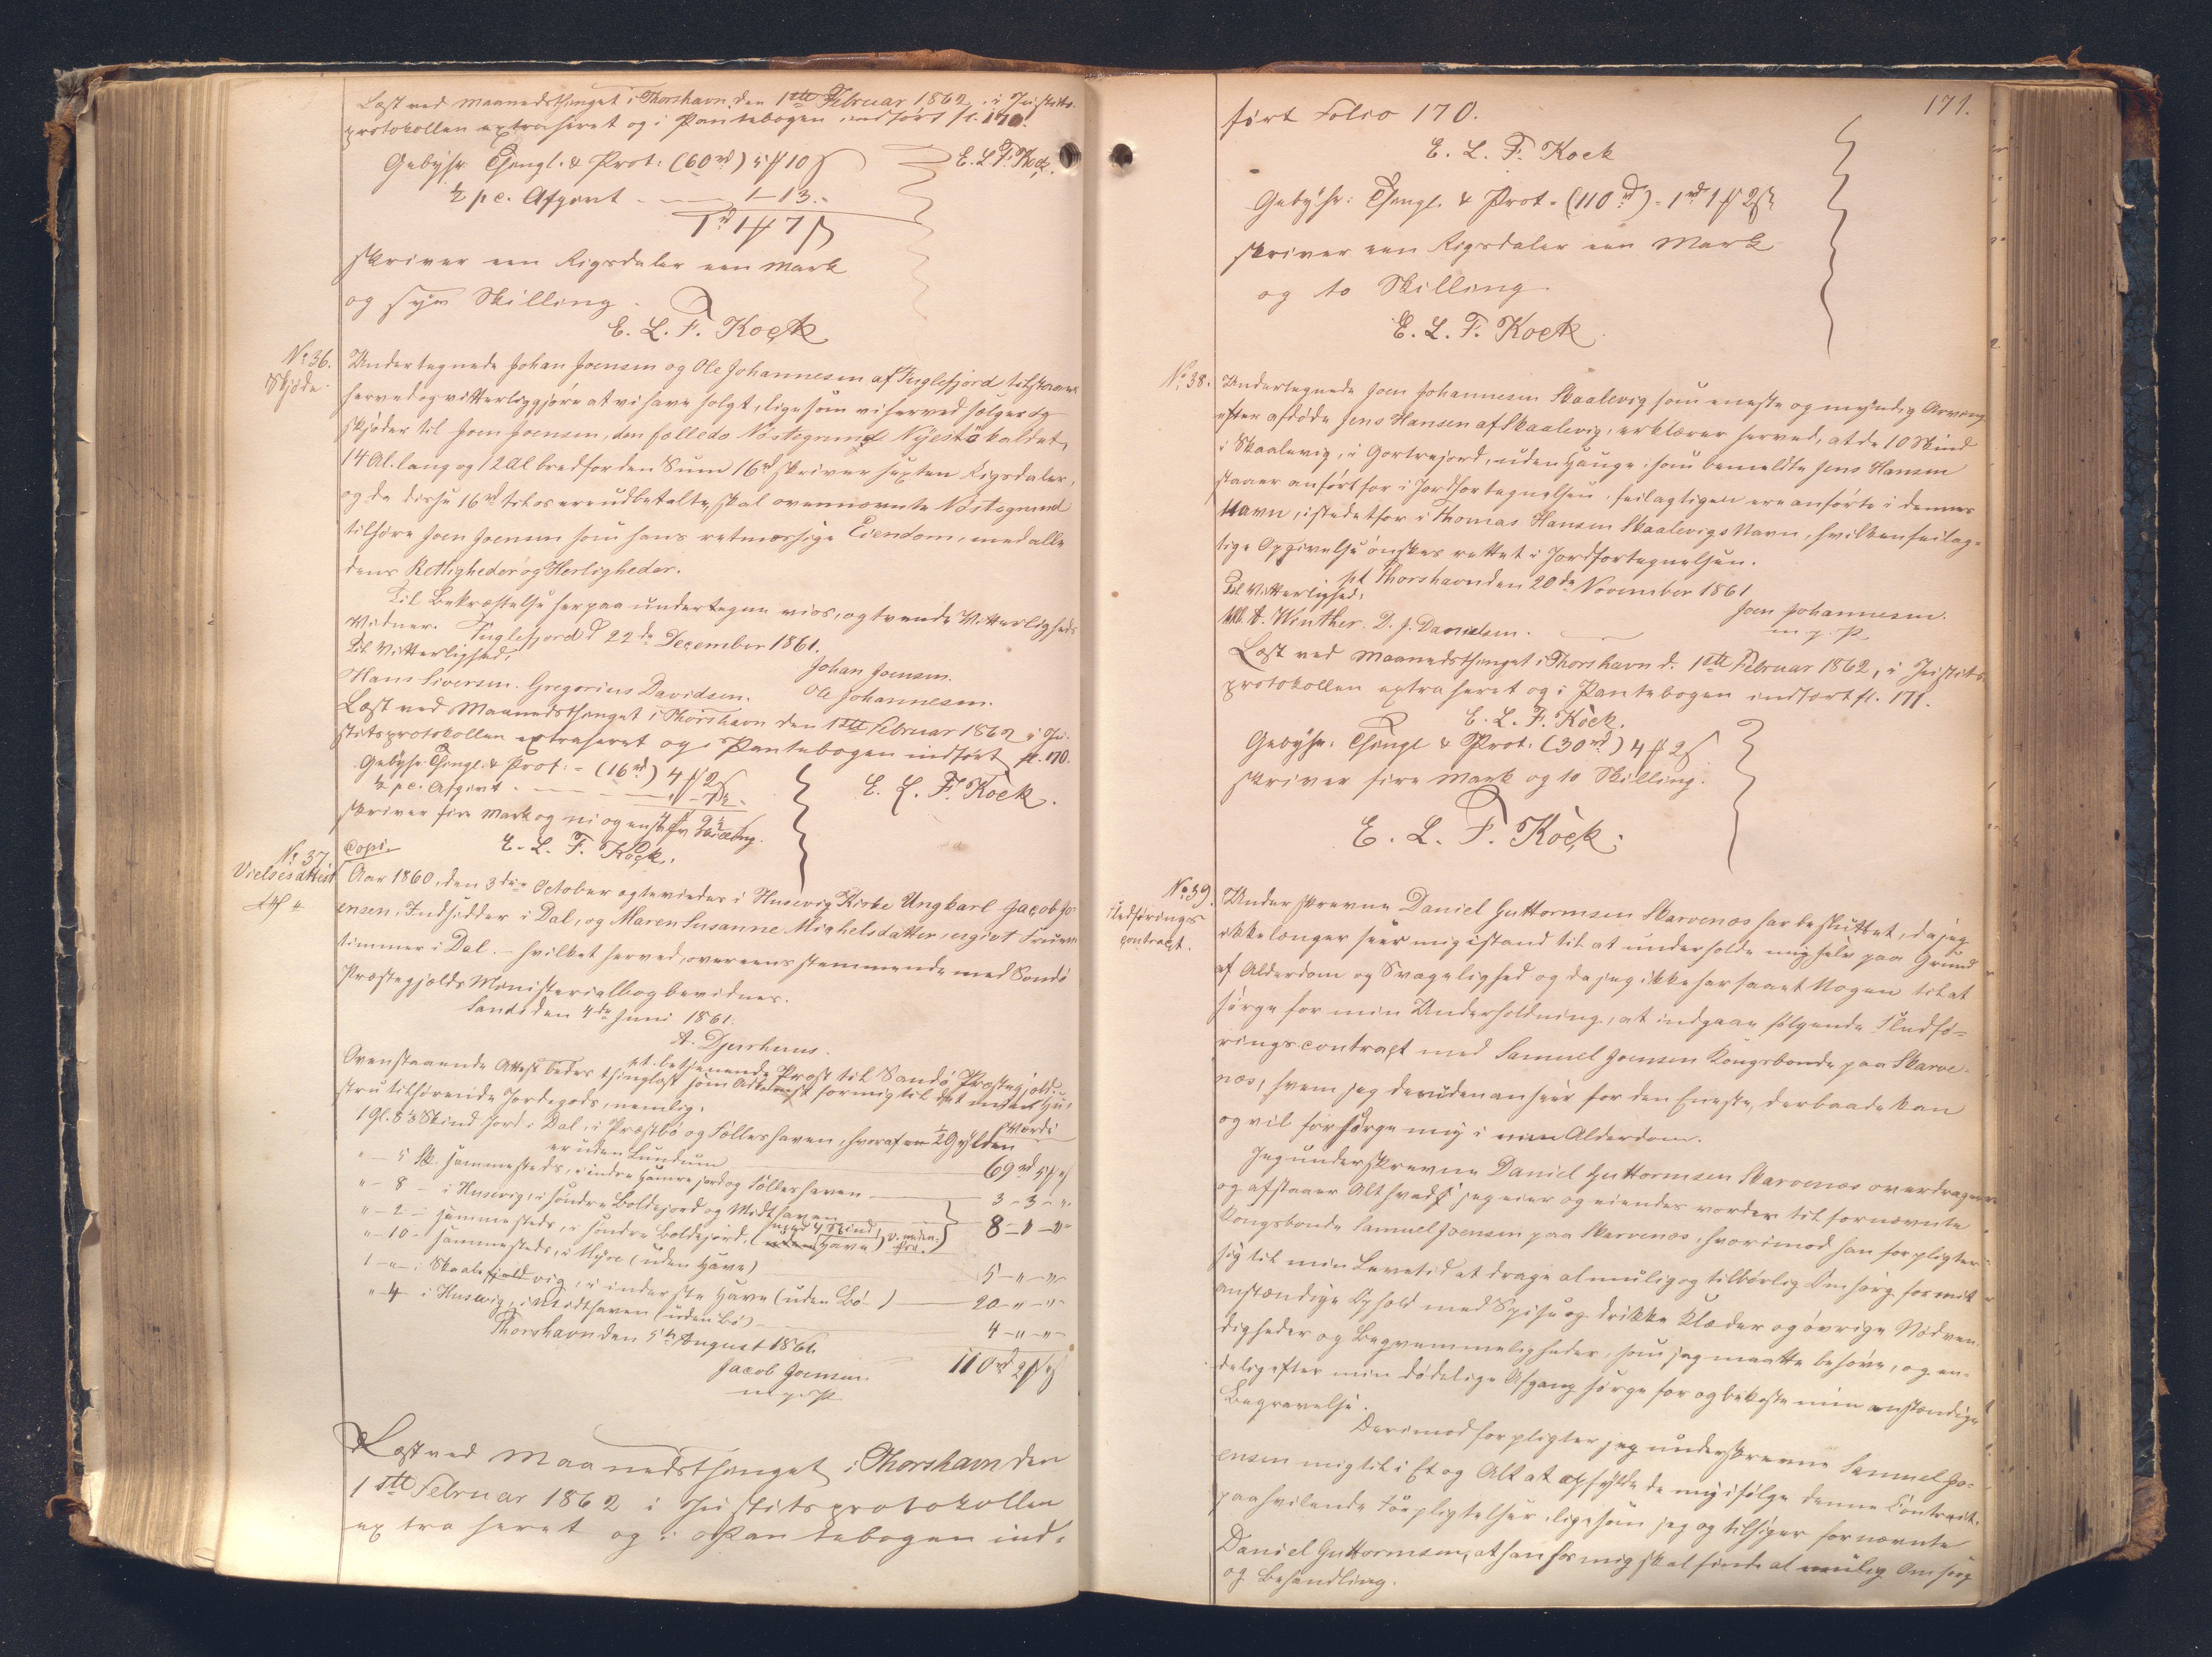 Læst ved Maanedsthinget i Thorshavn, den 1ste Februar 1862, i Justits-
protokollen extraheret og i Pantebogen indført fl. 170.
E. L. F. Kock.
Gebyhr Thingl. & Prot: (60 rd) 5 ₻ 10 ß
½ pc. Afgivt - — 1 — 13 -
1 rd 1 ₻ 7 ß
skriver een Rigsdaler een Mark
og syv Skilling.
E. L. F. Kock
No 36.
Skjøde.
Undertegnede Johan Joensen og Ole Johannesen af Fuglefjord tilstaaer
herved og vitterliggjøre at vi have solgt, ligesom vi herved sælger og
skjøder til Joen Joensen, den fælleds Nøstegrund Nyestø kaldet,
14 Al. lang og 12 Al bred for den Sum 16 rd skriver sexten Rigsdaler,
og da disse 16 rd til os ere udbetalte, skal ovennævnte Nøstegrund
tilhøre Joen Joensen som hans retmæssige Eiendom, med alle
dens Rettigheder og Herligheder.
Til Bekræftelse herpaa undertegne vi os, og tvende Vitterligheds
Vidner. Fuglefjord d 22de December 1861.
Til Vitterlighed,
Johan Joensen.
Hans Siversen. Gregorius Davidsen. Ole Johannesen.
Læst ved Maanedsthinget i Thorshavn den 1ste Februar 1862 i Ju-
stitsprotokollen extraheret og i Pantebogen indført fl. 170.
Gebyhr Thingl. & Prot: - (16 rd) 4 ₻ 2 ß
½ pc. Afgivt - — 7½ -
E. L. F. Kock.
skriver fire Mark og ni og en half Skilling.
E. L. F. Kock.
No 37
Vielsesattest
Copi.
Aar 1860, den 3die October ægteviedes i Husevig Kirke Ungkarl Jacob Jo-
ensen, Indsidder i Dal, og Maren Susanne Mighelsdatter, ugivt Fruen-
timmer i Dal. - hvilket herved, overeensstemmende med Sandø
Præstegjelds Ministerialbog bevidnes.
Sandø den 4de Juni 1861.
A. Djurhuus.
pt. betjenende Præst til Sandø Præstegjeld.
Ovenstaaende Attest bedes thinglæst som Adkomst for mig til det min Hu-
stru tilhørende Jordegods, nemlig:
Værdi
1 Gl. 8½ Skind Jord i Dal, i Præstbø og Fælleshaven, hvoraf en ½ Gylden
er uden Lundum — 69 rd 5 ₻ "
" — 5 Sk. sammesteds, i indre Hamrejord og Fælleshaven — 3 - 3 - "
" - 8 — i Husevig, i søndre Boldejord og Midthaven
" - 2 — sammesteds, i søndre Boldejord, (med 4 Skind Have) 8 - " - "
" - 10 - sammesteds, i Myre (uden Have) — 5 - " - "
1 - " - i Skaalevig, i inderste Have (uden Bø) — 20 - " - "
" - 4 i Husevig, i Midthaven (uden Bø) — 4 - " - "
Thorshavn den 5te August 1861.
110 rd 2 ₻ "
Jacob Joensen.
m. p. P.
Læst ved Maanedsthinget i Thorshavn den
1ste Februar 1862 i Justitsprotokollen
extraheret og i Pantebogen ind-
171.
ført Folio 170.
E. L. F. Kock
Gebyhr: Thingl. & Prot - (110 rd) - 1 rd 1 ₻ 2 ß
skriver een Rigsdaler een Mark
og to Skilling
E. L. F. Kock.
No 38.
Undertegnede Joen Johannesen Skaalevig som eneste og myndig Arving
efter afdøde Jens Hansen af Skaalevig, erklærer herved, at de 10 Skind
i Skaalevig, i Gortrejord, uden Hauge, som bemeldte Jens Hansen
staaer anført for i Jordfortegnelsen, feilagtigen ere anførte i dennes
Navn, istedetfor i Thomas Hansen Skaalevigs Navn, hvilken feilag-
tige Opgivelse ønskes rettet i Jordfortegnelsen.
pt Thorshavn den 20de November 1861
Til Vitterlighed:
Joen Johannesen.
m. p. P.
M. A. Winther. D. J. Danielsen.
Læst ved Maanedsthinget i Thorshavn d. 1ste Februar 1862, i Justits-
protokollen extraheret og i Pantebogen indført fl. 171.
E. L. F. Kock.
Gebyhr: Thingl & Prot: (30 rd) 4 ₻ 2 ß
skriver fire Mark og to Skilling.
E. L. F. Kock.
No 39.
Fledførings
contract.
Underskrevne Daniel Guttormsen Skarvenæs har besluttet, da jeg
ikke længer seer mig istand til at underholde mig selv paa Grund
af Alderdom og Svagelighed og da jeg ikke har faaet Nogen til at
sørge for min Underholdning, at indgaae følgende Fledfø-
ringscontract med Samuel Joensen Kongsbonde paa Skarve-
næs, hvem jeg desuden anseer for den Eneste, der baade kan
og vil forsørge mig i min Alderdom.
Jeg underskrevne Daniel Guttormsen Skarvenæs overdrager
og afstaaer Alt hvad jeg eier og eiendes vorder til fornævnte
Kongsbonde Samuel Joensen paa Skarvenæs, hvorimod han forpligter
sig til min Levetid at drage al mulig og tilbørlig Omsorg for mit
anstændige Ophold med Spise og drikke Klæder og øvrige Nødven-
digheder og Beqvemmeligheder, som jeg maatte behøve, og en-
delig efter min dødelige Afgang sørge for og bekoste min anstændige
Begravelse.
Derimod forpligter jeg underskrevne Samuel Jo-
ensen mig til i Et og Alt at opfylde de mig ifølge denne Contract
paahvilende Forpligtelser, ligesom jeg og tilsiger fornævnte
Daniel Guttormsen, at han hos mig skal finde al mulig Omsorg
og Behandling.